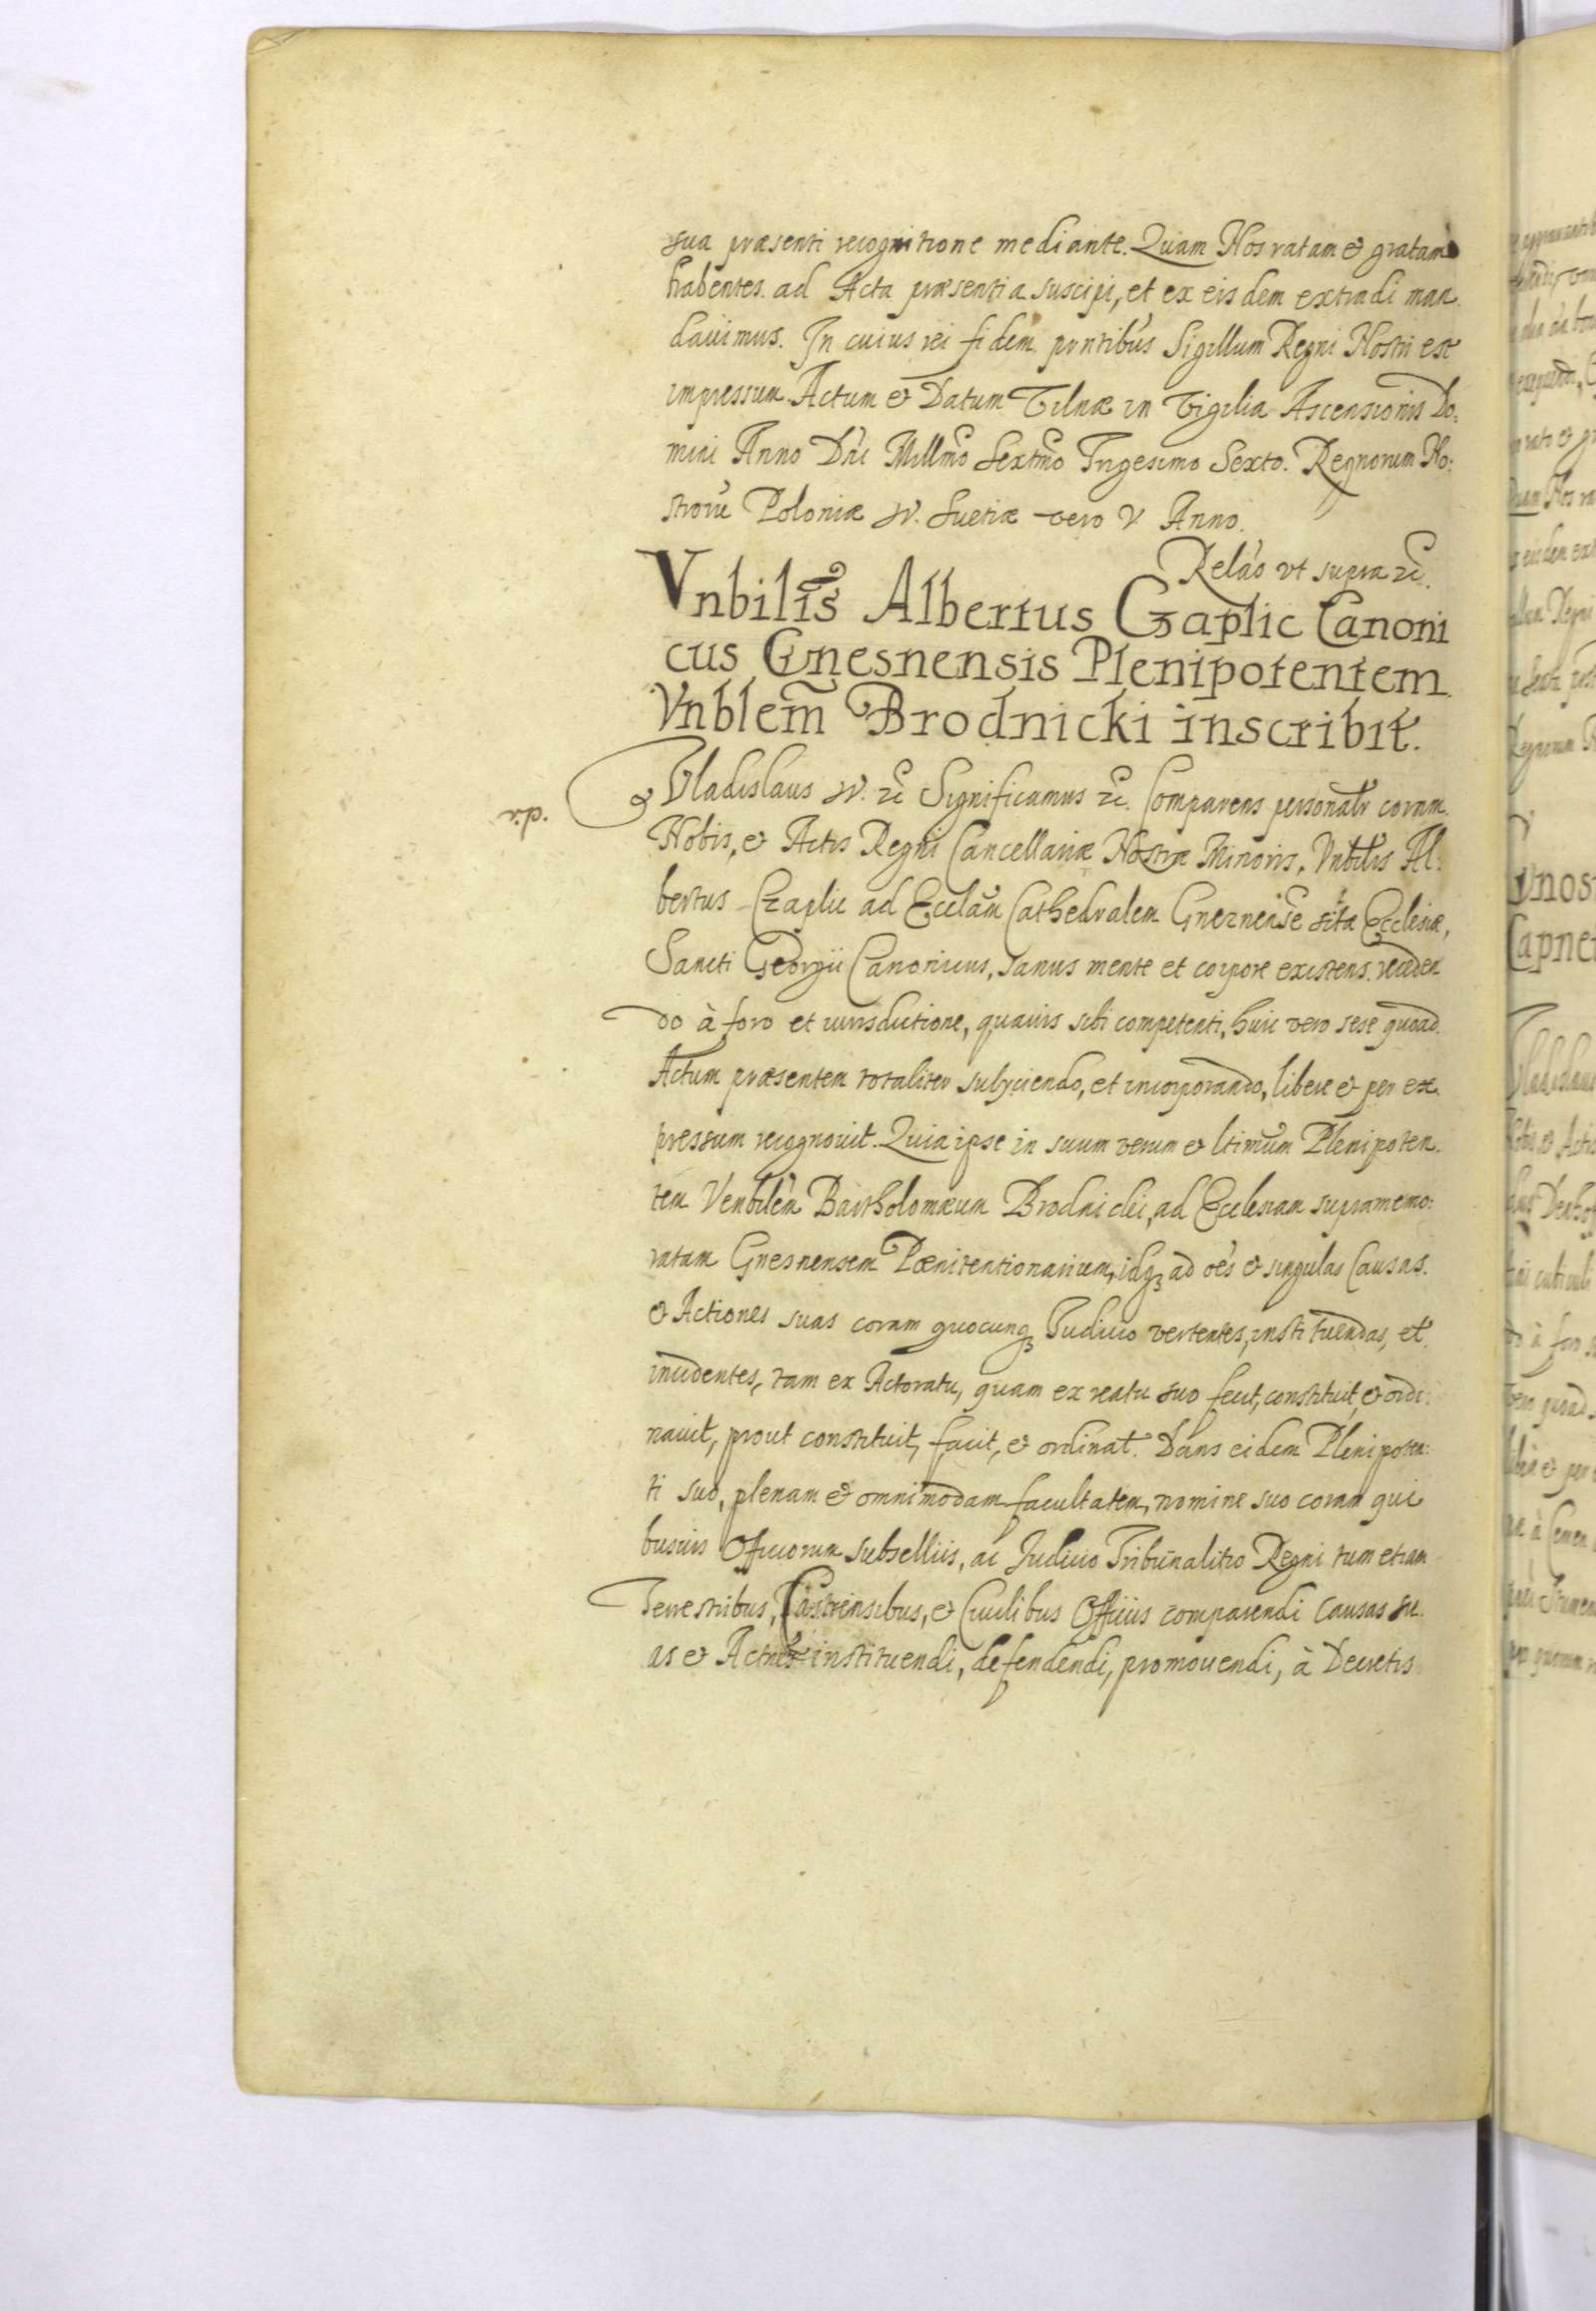 sua præsenti recognitione mediante. Quam Nos ratam & gratam
habentes. ad Acta præsentia suscipi, et ex eisdem extradi man
davimus. In cuius rei fidem pnntibus Sigillum Regni Nostri est
impressum. Actum & Datum Vilnæ in Vigilia Ascensionis Do:
mini Anno Dni Millmo Sextmo Trigesimo Sexto. Regnorum No:
strorũ Poloniæ IV. Suetiæ vero V Anno.
Relao vt supra &c.
Vnbilis Albertus Czaplic Canoni
cus Gnesnensis Plenipotentem
Vnblem Brodnicki inscribit.
Vladislaus IV. &c Significamus &c. Comparens personalr coram
Nobis, & Actis Regni Cancellariæ Nostræ Minoris, Vnbilis Al:
bertus Czaplic ad Ecclam Cathedralem Gneznense sitæ Ecclesiæ,
Sancti Georgii Canonicus, sanus mente et corpore existens. receden
do à foro et iurisdictione, quauis sibi competenti, huic vero sese quoad
Actum præsentem totaliter subijciendo, et incorporando, libere & per ex
pressum recognovit. Quia ipse in suum verum & ltimum Plenipoten
tem Venbilem Bartholomæum Brodnicki, ad Ecclesiam supramemo:
ratam Gnesnensem Pœnitentionarium, idq3 ad oēs & singulas Causas.
& Actiones suas coram quocunq3 Iudicio vertentes, instituendas, et
incidentes, tam ex Actoratu, quam ex reatu suo fecit, constituit, & ordi:
nauit, prout constituit, facit, & ordinat. Dans eidem Plenipoten:
ti suo, plenam & omnimodam facultatem, nomine suo coram qui
busuis Officiorum subselliis, ac Iudicio Tribunalitio Regni tum etiam
Terrestribus, Castrensibus, & Ciuilibus Officiis comparendi Causas su
as & Actnes instituendi, defendendi, promouendi, à Decretis